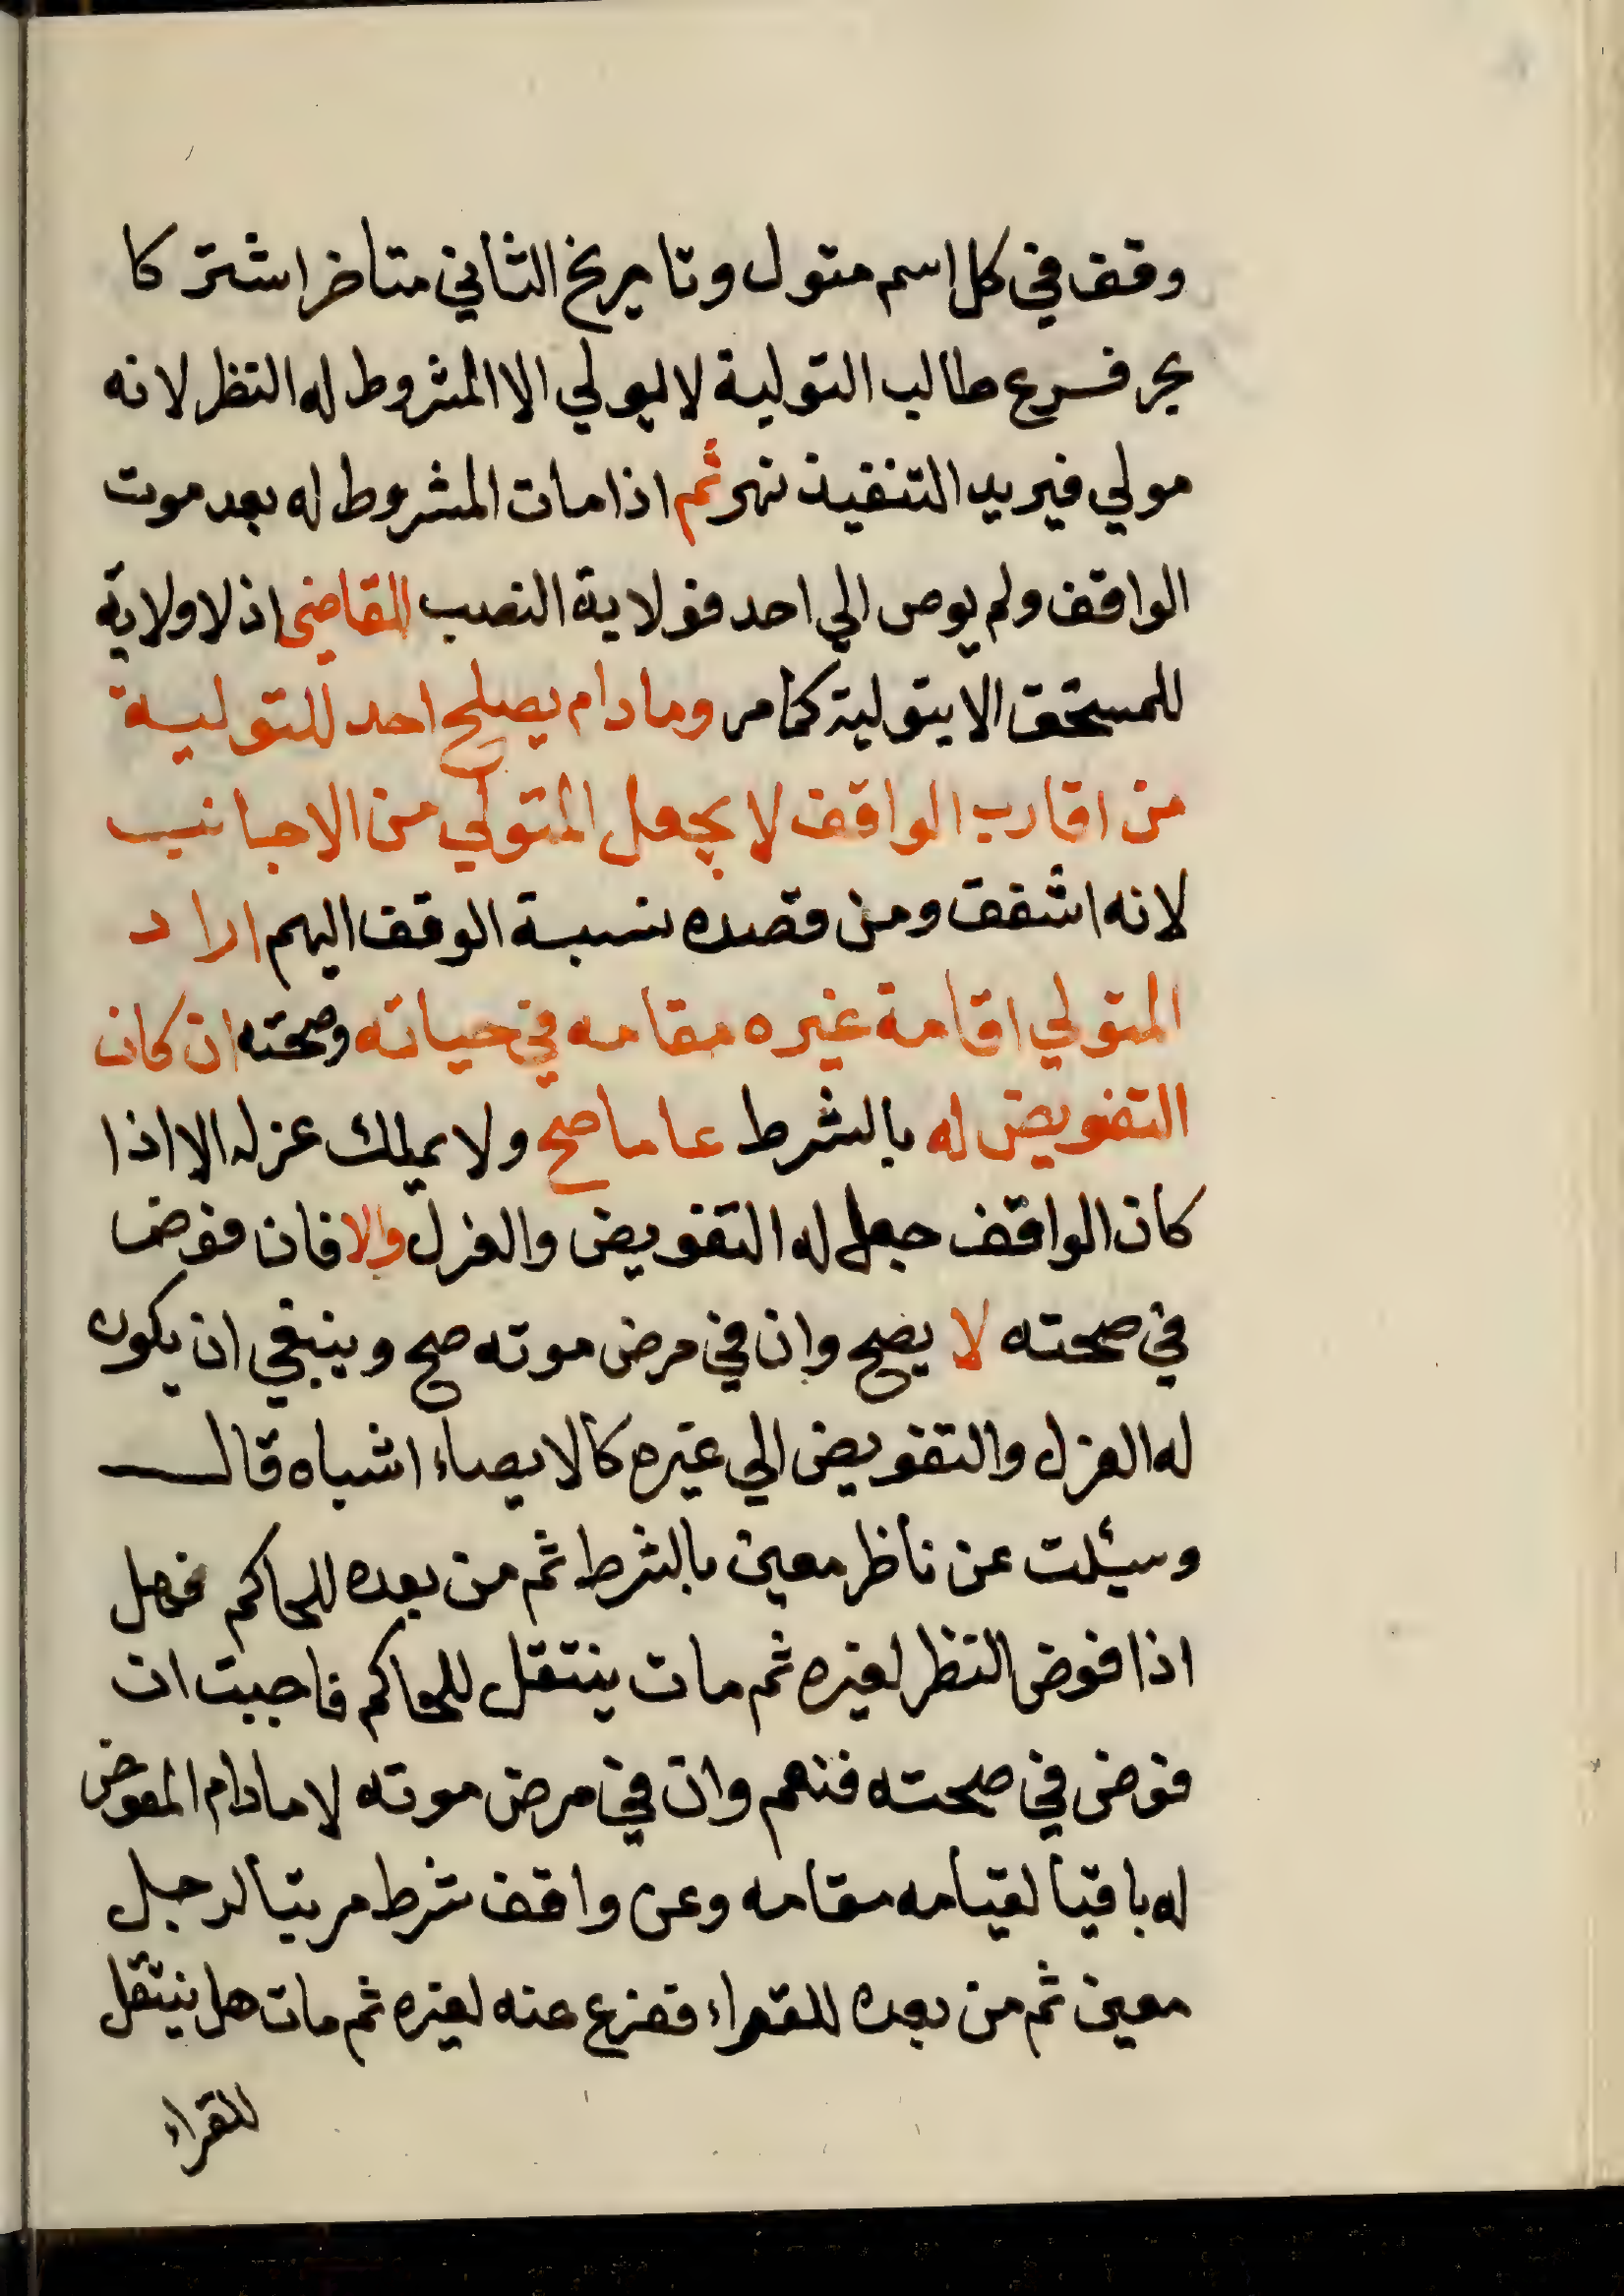 وقف في كل اسم متول وتاريخ الثاني متاخر اشتركا
بحر فرع طالب التولية لا يولي الا المشروط له النظر لانه
مولي فيريد التنفيذ نهر ثم اذا مات المشروط له بعد موت
الواقف ولم يوص الي احد فولاية النصب للقاضي اذ لا ولاية
للمستحق الا بتولية كما مر وما دام يصلح احد للتولية
من اقارب الواقف لا يجعل المتولي من الاجانب
لانه اشفق ومن قصده نسبة الوقف اليهم اراد
المتولي اقامة غيره مقامه في حياته وصحته ان كان
التفويض له بالشرط عاما صح ولا يملك عزله الا اذا
كان الواقف جعل له التفويض والعزل والا فان فوض
في صحته لا يصح وان في مرض موته صح وينبغي ان يكون
له العزل والتفويض الي غيره كالايصاء اشباه قال
وسئلت عن ناظر معين بالشرط ثم من بعده للحاكم فهل
اذا فوض النظر لغيره ثم مات ينتقل للحاكم فاجبت ان
فوض في صحته فنعم وان في مرض موته لا ما دام المفوض
له باقيا لقيامه مقامه وعن واقف شرط مرتبا لرجل
معين ثم من بعده للفقراء ففرغ عنه لغيره ثم مات هل ينتقل
للفقراء